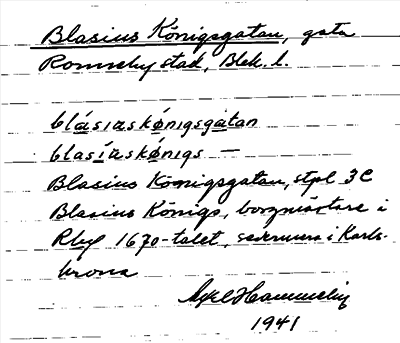 Blasius Königsgatan, gata
Ronneby stad, Blek. l.
blásiɪskǿnigsgàtan
blasíɪskǿnigs —
Blasius Königsgatan, stpl 3C
Blasius Königs, borgmästare i
Rby 1670-talet, sedermera i Karls-
krona
Axel Hammelin
1941